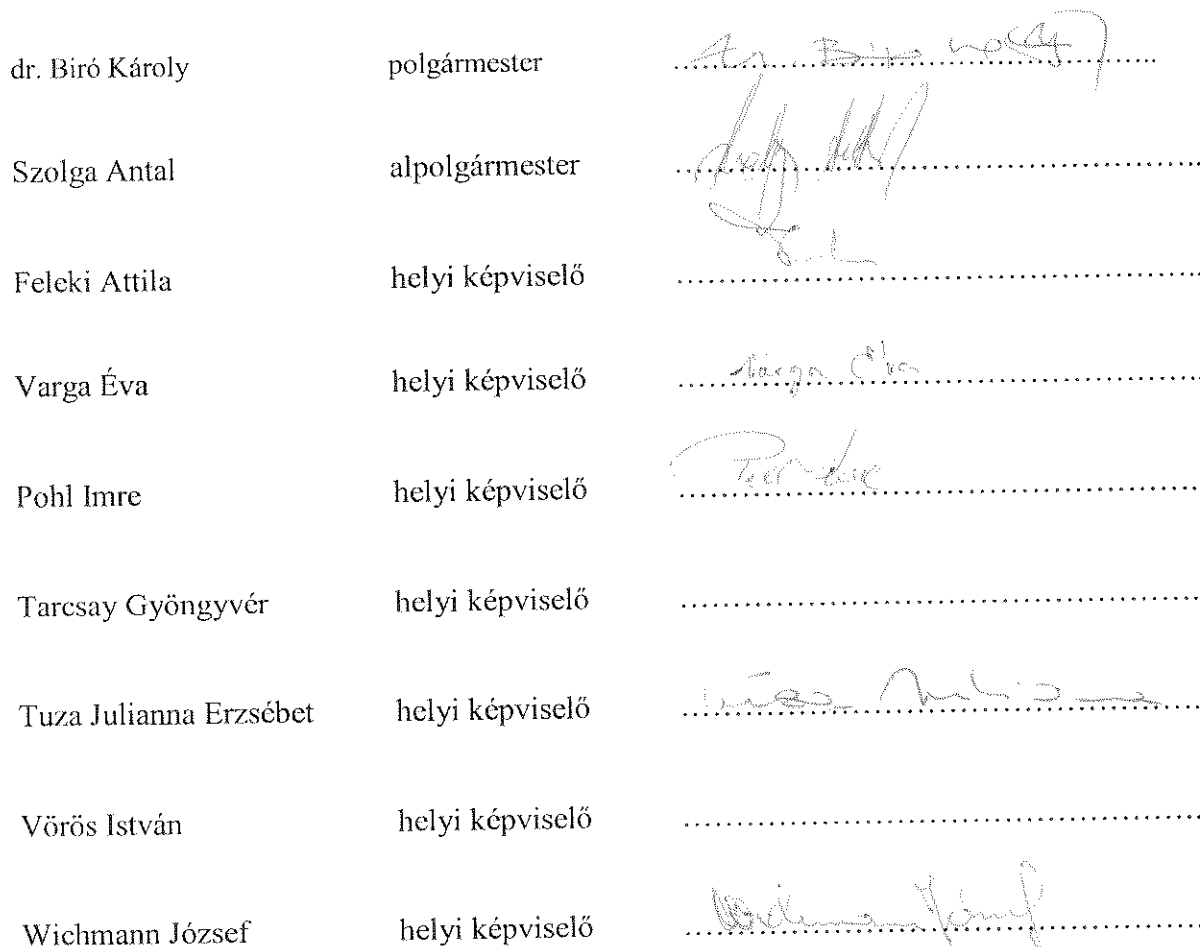 dr. Biró Károly polgármester dr. Biró Károly
Szolga Antal alpolgármester
Feleki Attila helyi képviselő
Varga Éva helyi képviselő Varga Éva
Pohl Imre helyi képviselő
Tarcsay Gyöngyvér helyi képviselő
Tuza Julianna Erzsébet helyi képviselő Tuza Julianna
Vörös István helyi képviselő
Wichmann József helyi képviselő Wichmann József